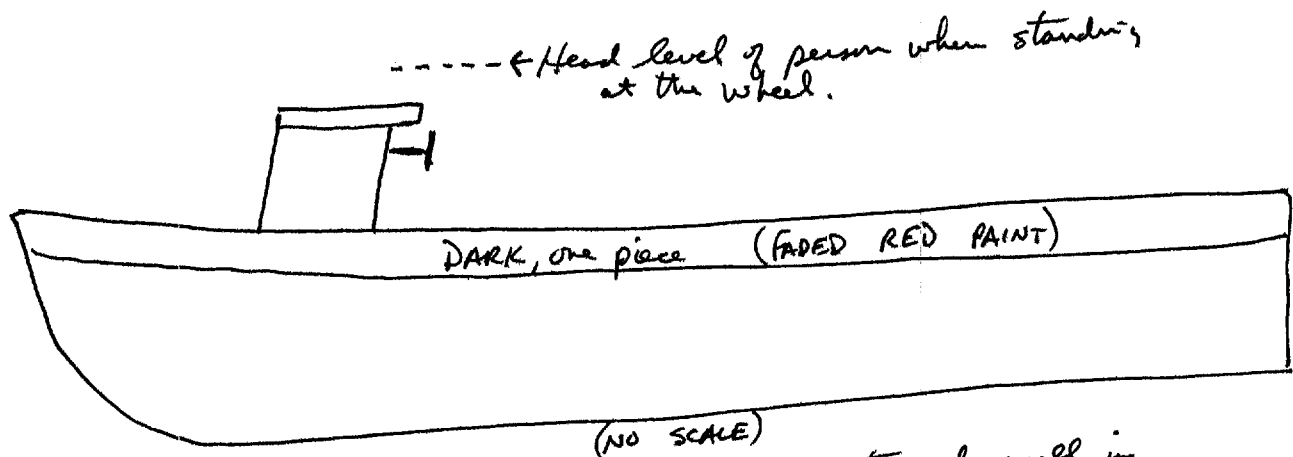 -----← Head level of person when standing
at the wheel.
DARK, one piece (FADED RED PAINT)
(NO SCALE)